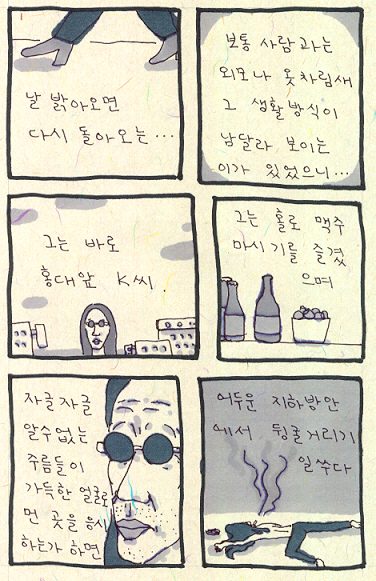 날 밝아오면
다시 돌아오는...
보통 사람과는
외모나 옷차림새
그 생활방식이
남달라 보이는
이가 있었으니...
그는 바로
홍대앞 K씨.
그는 홀로 맥주
마시기를 즐겼
으며
자글자글
알수없는
주름들이
가득한 얼굴로
먼 곳을 응시
하는가 하면
어두운 지하방안
에서 뒹굴거리기
일쑤다